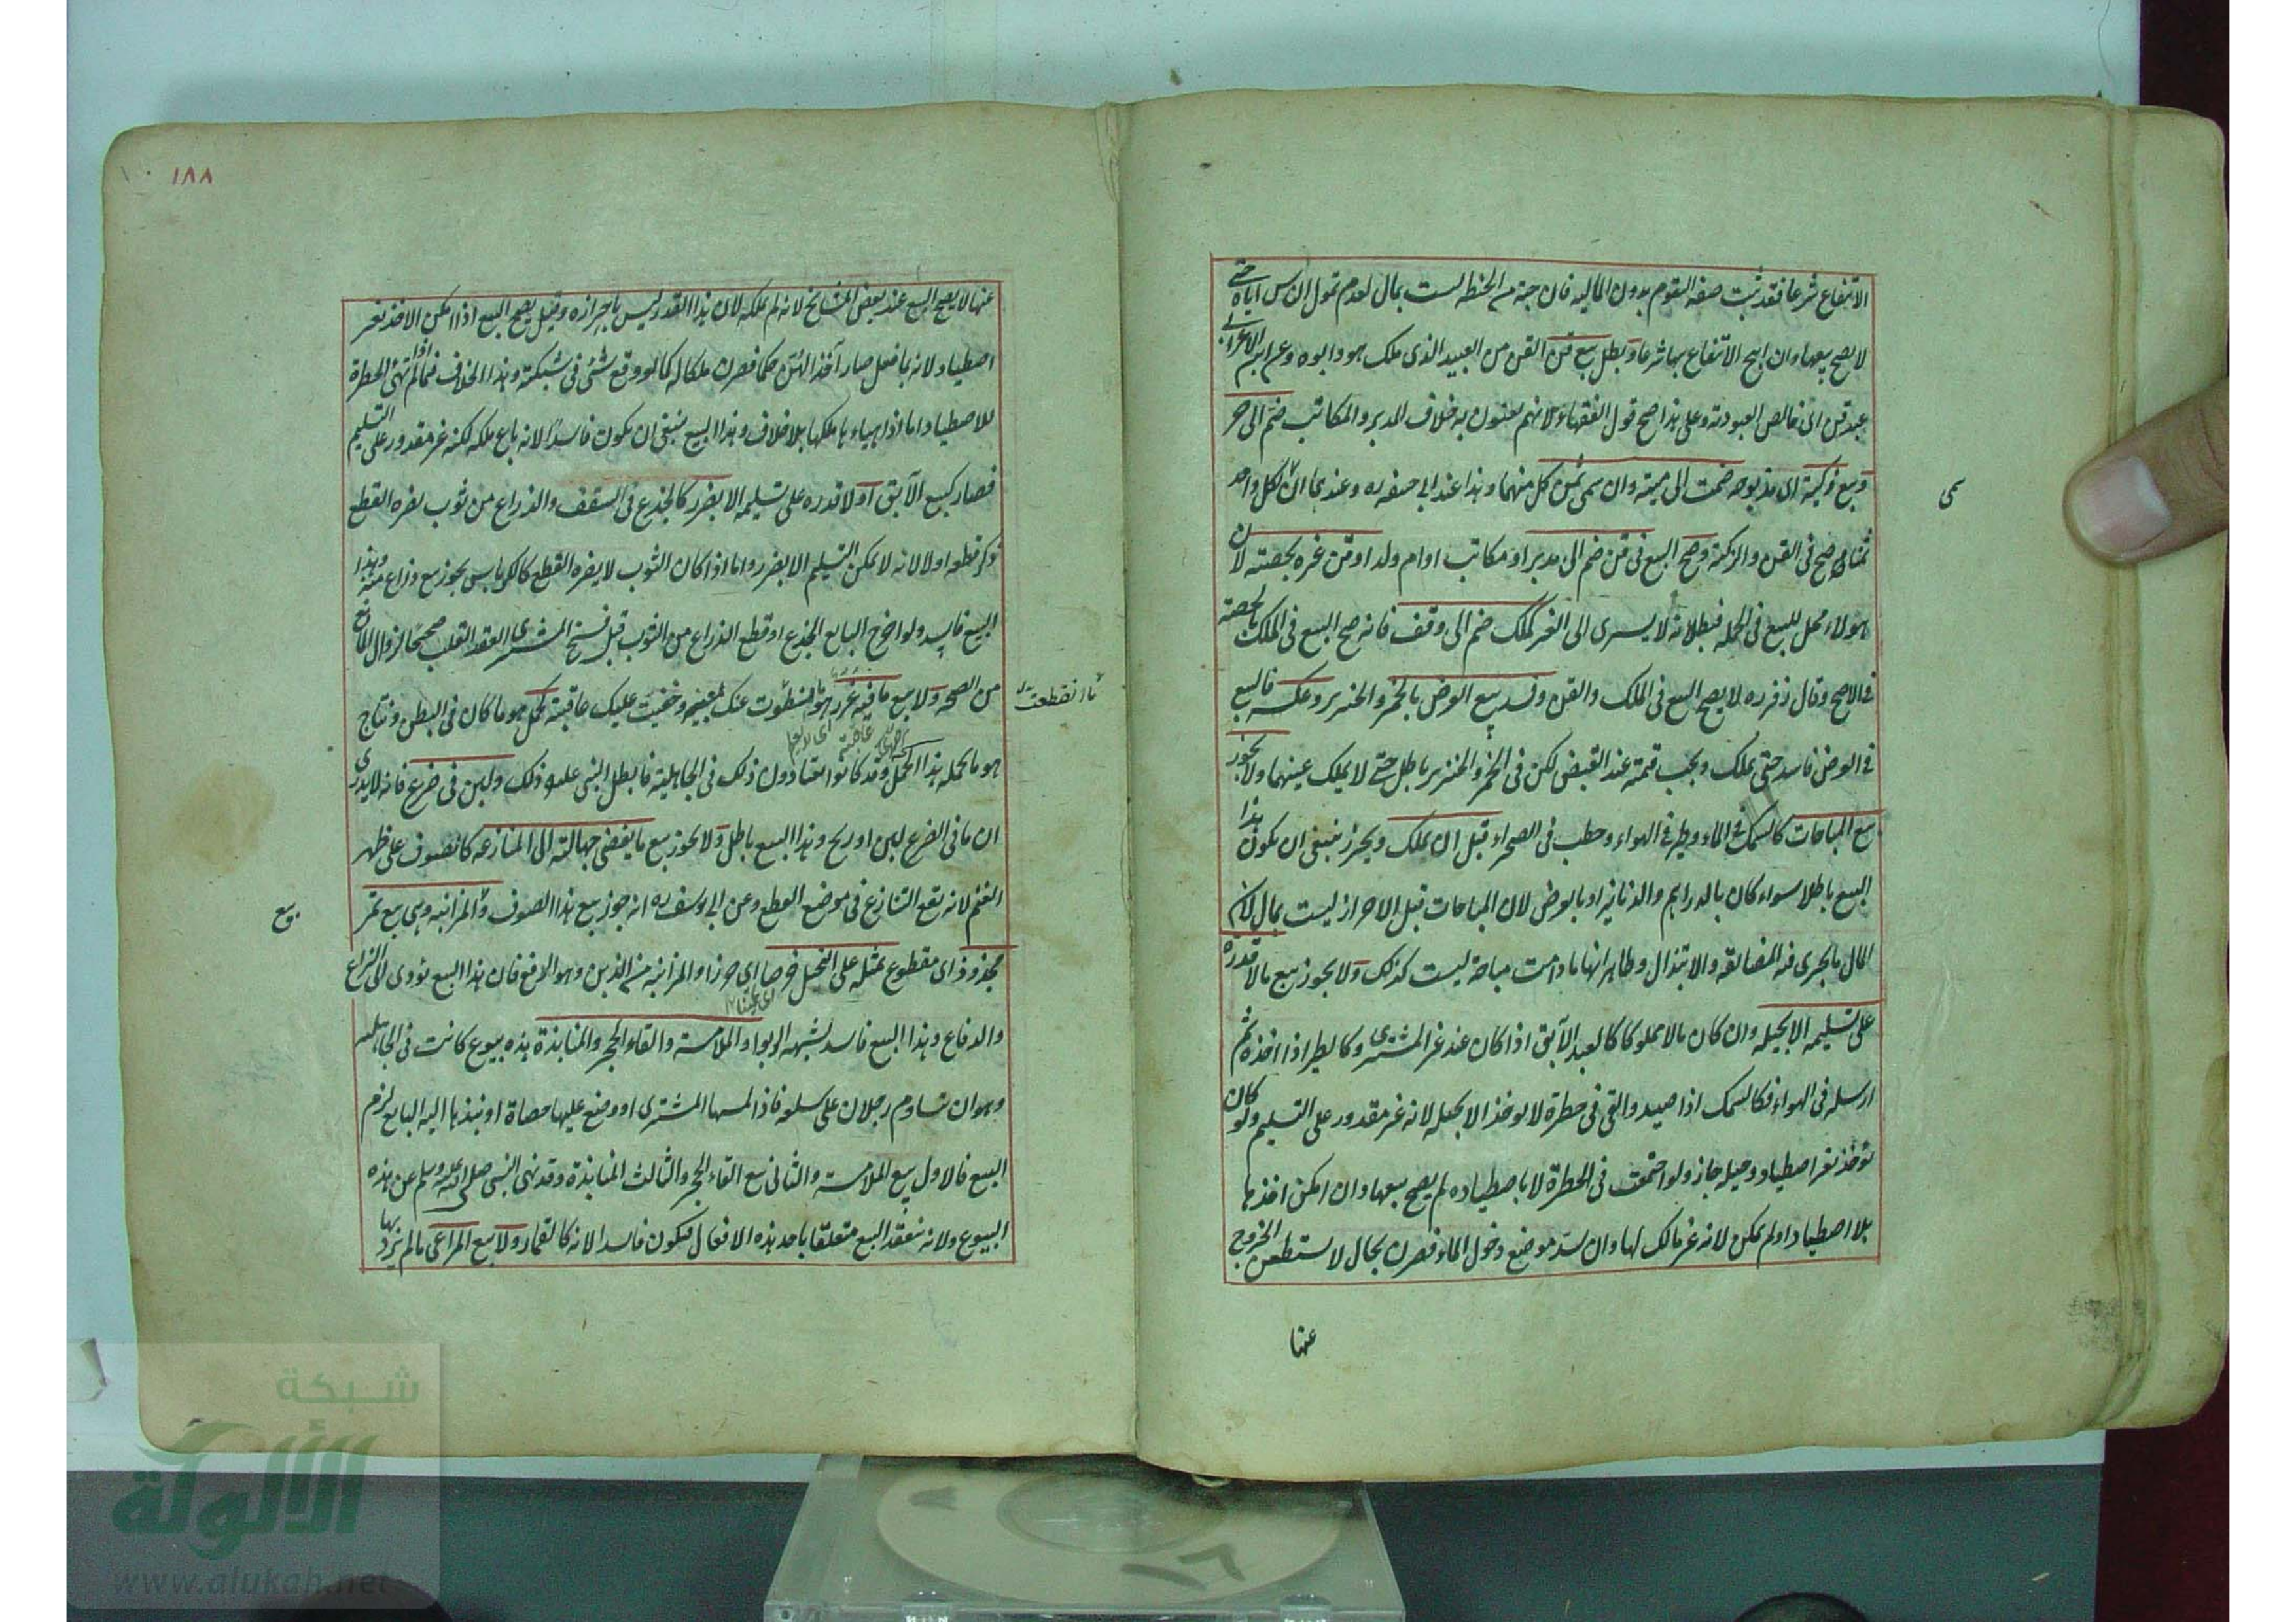 الانتفاع شرعا فقد ثبت صفة التقوم بدون المالية فان حبة من الحنطة ليست بمال لعدم تمول الناس اياه حتى
لا يصح بيعها وان ابيح الانتفاع بها شرعا وبطل بيع قن القن من العبيد الذى ملك هو وابوه وعن ابن الاعرابى
عبد قن اى خالص العبودية وعلى هذا صح قول الفقهاء لانهم يعنون به خلاف المدبر والمكاتب ضم الى حر
وبيع ذكية اى مذبوحة ضمت الى ميتة وان سمى ثمن كل منهما وهذا عند ابى حنيفه ره وعندهما ان لكل واحد
ثمنا صح فى القن والذكية وصح البيع فى قن ضم الى مدبر او مكاتب او ام ولد او قن غيره بحصته لان
هولاء محل للبيع فى الجملة فبطلانه لا يسرى الى الغير كملك ضم الى وقف فانه صح البيع فى الملك بالحصة
فى الاصح وقال زفر ره لا يصح البيع فى الملك والقن وفسد بيع العوض بالخمر والخنزير وعكسه فالبيع
فى العوض فاسد حتى يملك ويجب قيمته عند القبض لكن فى الخمر والخنزير باطل حتى لا يملك عينهما ولا يجوز
بيع المباحات كالسمك فى الماء وطير فى الهواء وحطب فى الصحراء قبل ان يملك ويحرز ينبغى ان يكون هذا
البيع باطلا سواء كان بالدراهم والدنانير او بالعوض لان المباحات قبل الاحراز ليست بمال لان
المال ما يجرى فيه المضايقة والابتذال وظاهر انها ما دامت مباحة ليست كذلك ولا يجوز بيع ما لا قدرة
على تسليمه الا بحيلة وان كان مالا مملوكا كالعبد الآبق اذا كان عند غير المشترى وكالطير اذا اخذه ثم
ارسله فى الهواء فكالسمك اذا صيد والقى فى حظيرة لا يوخذ الا بحيلة لانه غير مقدور على التسليم ولو كان
توخذ بغير اصطياد وحيلة جاز ولو اجتمعت فى الحظيرة لا باصطياده لم يصح بيعها وان امكن اخذها
بلا اصطياد او لم يمكن لانه غير مالك لها وان سد موضع دخول الماء فصرن بحال لا يستطعن الخروج
عنها
عنها لا يصح البيع عند بعض المشايخ لانه لم يملكه لان هذا القدر ليس باحرازه وقيل يصح البيع اذا امكن الاخذ بغير
اصطياد لانه بما فعل صار آخذا لهن حكما فصرن ملكا له كما لو وقع شئى فى شبكته وهذا الخلاف فيما اذا لم تهئ الحظيرة
للاصطياد اما اذا هياءها ملكها بلا خلاف وهذا البيع ينبغى ان يكون فاسدا لانه باع ملكه لكنه غير مقدور على التسليم
فصار كبيع الآبق او لا قدرة على تسليمه الا بضرر كالجذع فى السقف والذراع من ثوب يضره القطع
ذكر قطعه او لا لانه لا يمكن التسليم الا بضرر واما اذا كان الثوب لا يضره القطع كالكرباس يجوز بيع ذراع منه وهذا
البيع فاسد ولو اخرج البايع الجذع او قطع الذراع من الثوب قبل فسخ المشترى العقد انقلب صحيحا لزوال المانع
من الصحة ولا بيع ما فيه غرر هو ما انطوت عنك مغبته وخفيت عليك عاقبته كحمل هو ما كان فى البطن ونتاج
هو ما يحمله هذا الحمل وقد كانوا يعتادون ذلك فى الجاهلية فابطل النبى عليه ذلك ولبن فى ضرع فانه لا يدرى
ان ما فى الضرع لبن او ريح وهذا البيع باطل ولا يجوز بيع ما يفضى جهالته الى المنازعة كالصوف على ظهر
الغنم لانه يقع التنازع فى موضع القطع وعن ابى يوسف ره انه جوز بيع هذا الصوف والمزابنة وهى بيع تمر
مجذوذ اى مقطوع بمثله على النخيل خرصا اى حرزا والمزابنة من الذبن وهو الدفع فان هذا البيع يؤدى الى النزاع
والدفاع وهذا البيع فاسد لشبهة الربوا والملامسة والقاء الحجر والمنابذة هذه بيوع كانت فى الجاهلية
وهو ان تساوم رجلان على سلعة فاذا لمسها المشترى او وضع عليها حصاة او نبذها اليه البايع لزم
البيع فالاول بيع الملامسة والثانى بيع القاء الحجر والثالث المنابذة وقد نهى النبى صلى الله عليه وسلم عن هذه
البيوع ولانه ينعقد البيع متعلقا باحد هذه الافعال فيكون فاسدا لانه كالقمار ولا بيع المراعى ما لم يرد بها
بيع
١٨٨
شبكة
الألوكة
www.alukah.net